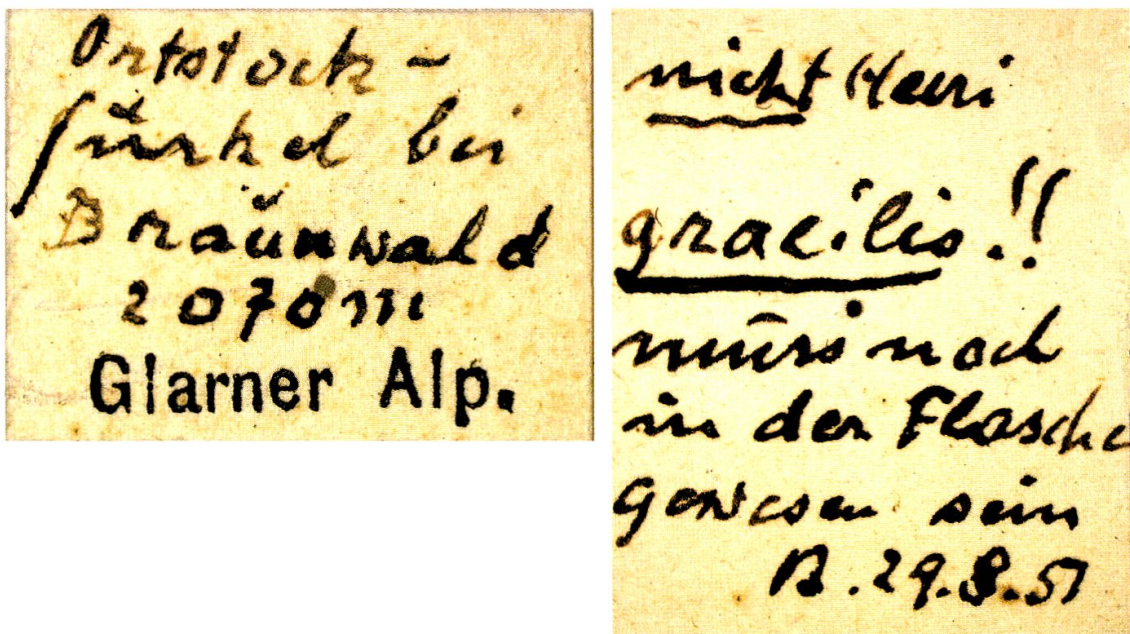 Ortstock-
fürkel bei
Braunwald
2070m
Glarner Alp.
nicht Heeri
gracilis!!
muss noch
in der Flasche
gewesen sein
B. 29.8.51